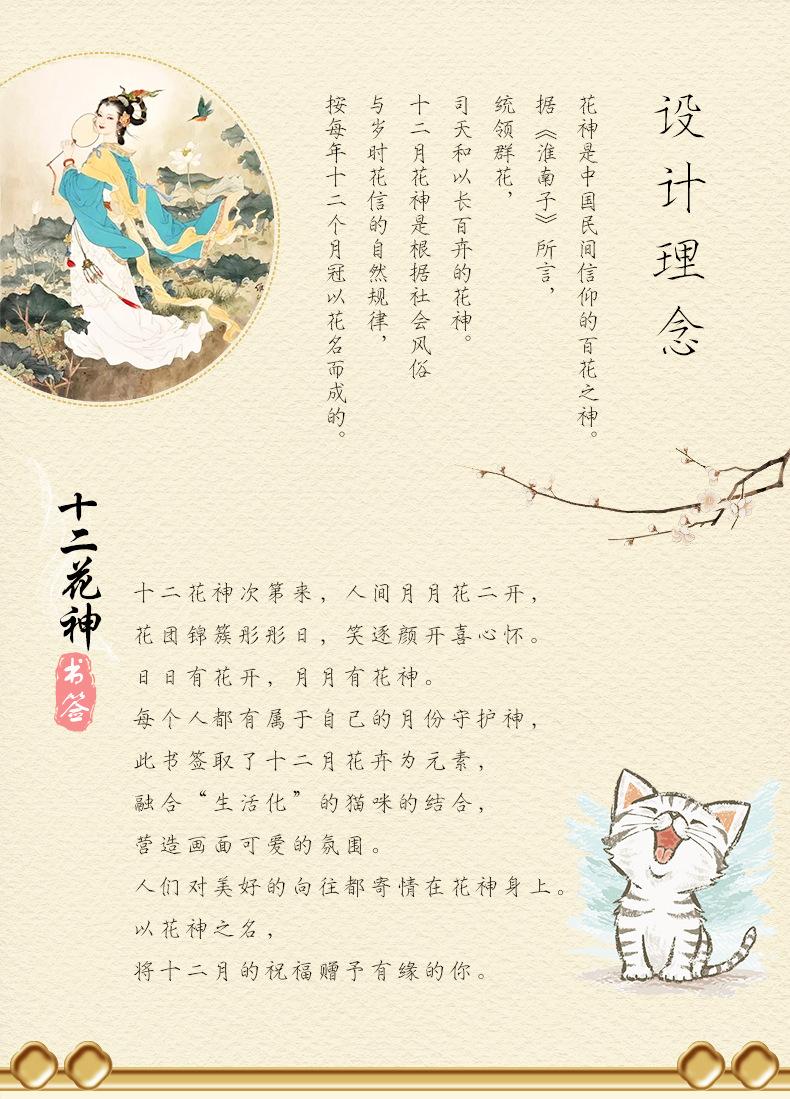 设计理念
花神是中国民间信仰的百花之神。
据《淮南子》所言，
统领群花，
司天和以长百卉的花神。
十二月花神是根据社会风俗
与岁时花信的自然规律，
按每年十二个月冠以花名而成的。
十二花神
书签
十二花神次第来，人间月月花二开，
花团锦簇彤彤日，笑逐颜开喜心怀。
日日有花开，月月有花神。
每个人都有属于自己的月份守护神，
此书签取了十二月花卉为元素，
融合“生活化”的猫咪的结合，
营造画面可爱的氛围。
人们对美好的向往都寄情在花神身上。
以花神之名，
将十二月的祝福赠予有缘的你。